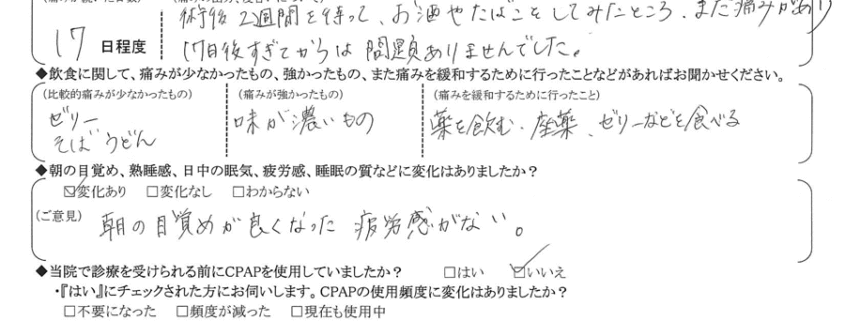 術後2週間を待って、お酒やたばこをしてみたところ、まだ痛みがあり
17 日程度
17日後すぎてからは問題ありませんでした。
◆飲食に関して、痛みが少なかったもの、強かったもの、また痛みを緩和するために行ったことなどがあればお聞かせください。
(比較的痛みが少なかったもの) (痛みが強かったもの) (痛みを緩和するために行ったこと)
ゼリー
そば うどん
味が濃いもの
薬を飲む・座薬、ゼリーなどを食べる
◆朝の目覚め、熟睡感、日中の眠気、疲労感、睡眠の質などに変化はありましたか？
☑変化あり □変化なし □わからない
(ご意見) 朝の目覚めが良くなった 疲労感がない。
◆当院で診療を受けられる前にCPAPを使用していましたか？ □はい ☑いいえ
・『はい』にチェックされた方にお伺いします。CPAPの使用頻度に変化はありましたか？
□不要になった □頻度が減った □現在も使用中